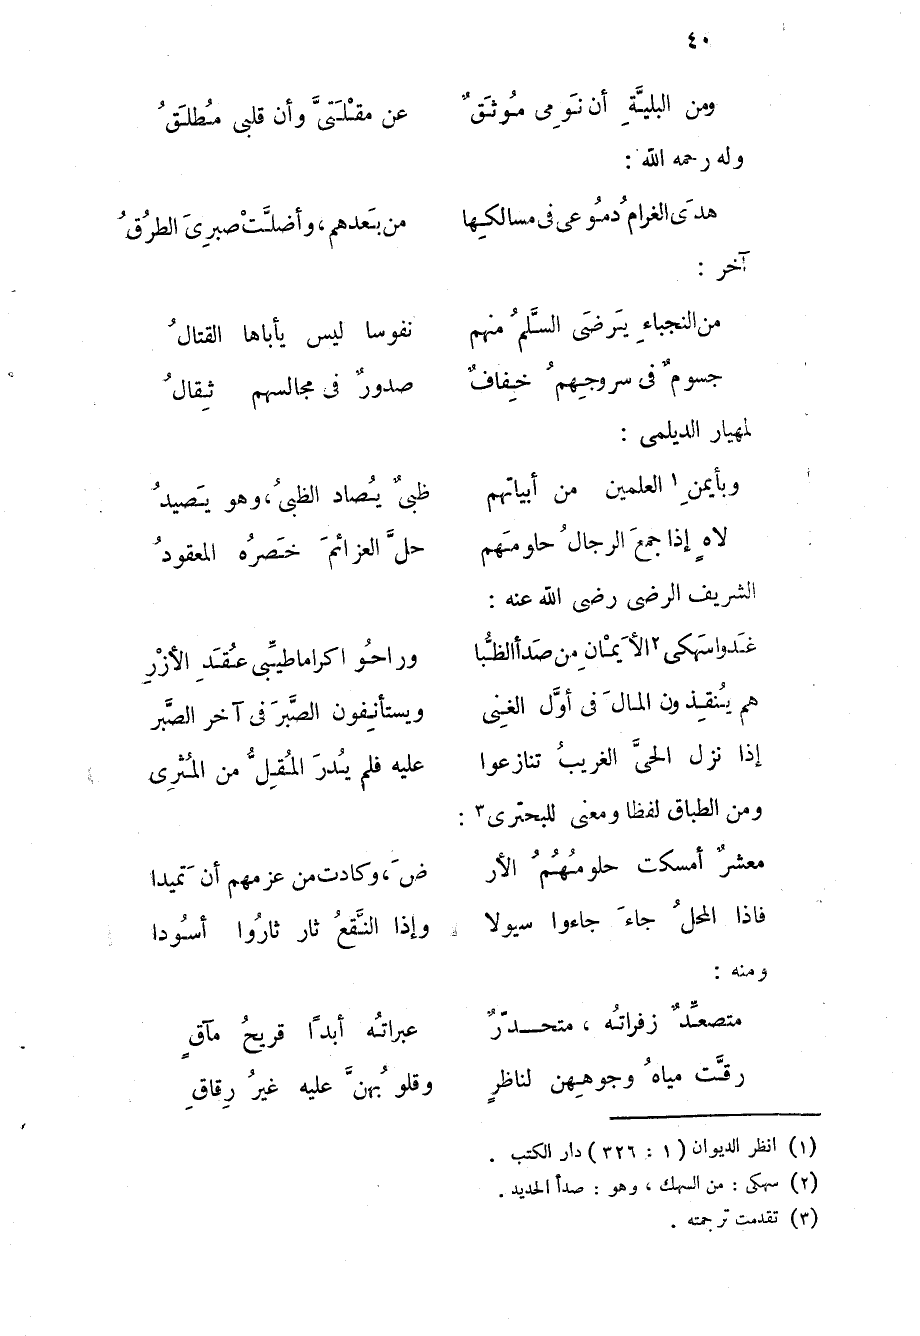 ٤٠
ومن البليَّةِ أن نَومِى مُوثَقٌ عن مقلَتىَّ وأن قلبى مُطلَقُ
وله رحمه الله :
هدَى الغرامُ دمُوعى فى مسالكِها من بَعدهم، وأضلَّتْ صبرِىَ الطرُقُ
آخر :
من النجباءِ يَرضَى السَّلمُ منهم نفوسا ليس يأباها القتالُ
جسومٌ فى سروجِهمُ خِفافٌ صدورٌ فى مجالسهم ثِقالُ
لمهيار الديلمى :
وبأيمنِ ١ العلمين من أبياتهم ظبىٌ يُصاد الظبىُ، وهو يَصيدُ
لاهٍ إذا جمعَ الرجالُ حلومَهم حلَّ العزائمَ خَصرُه المعقودُ
الشريف الرضى رضى الله عنه :
غَدوا سَهكى ٢ الأَيمْانِ من صَدَأ الظُّبا وراحُو اكراما طيِّبى عُقَدِ الأزْرِ
هم يُنقِذون المالَ فى أوَّل الغِنِى ويستأنِفون الصَّبرَ فى آخر الصَّبر
إذا نزل الحىَّ الغريبُ تنازعوا عليه فلم يُدرَ المُقِلُّ من المُثْرِى
ومن الطباق لفظا ومعنى للبحترى ٣ :
معشرٌ أمسكت حلومُهُمُ الأر ضَ، وكادت من عزمهم أن تَميدا
فاذا المحلُ جاءَ جاءوا سيولا وإذا النَّقعُ ثار ثارُوا أسُودا
ومنه :
متصعِّدٌ زفراتُه ، متحــدّرٌ عبراتُه أبدًا قريحُ مآقٍ
رقَّت مياهُ وجوهِهن لناظرٍ وقلوبُهنَّ عليه غيرُ رِقاقِ
(١) انظر الديوان ( ١ : ٣٢٦ ) دار الكتب .
(٢) سهكى : من السهك ، وهو : صدأ الحديد .
(٣) تقدمت ترجمته .